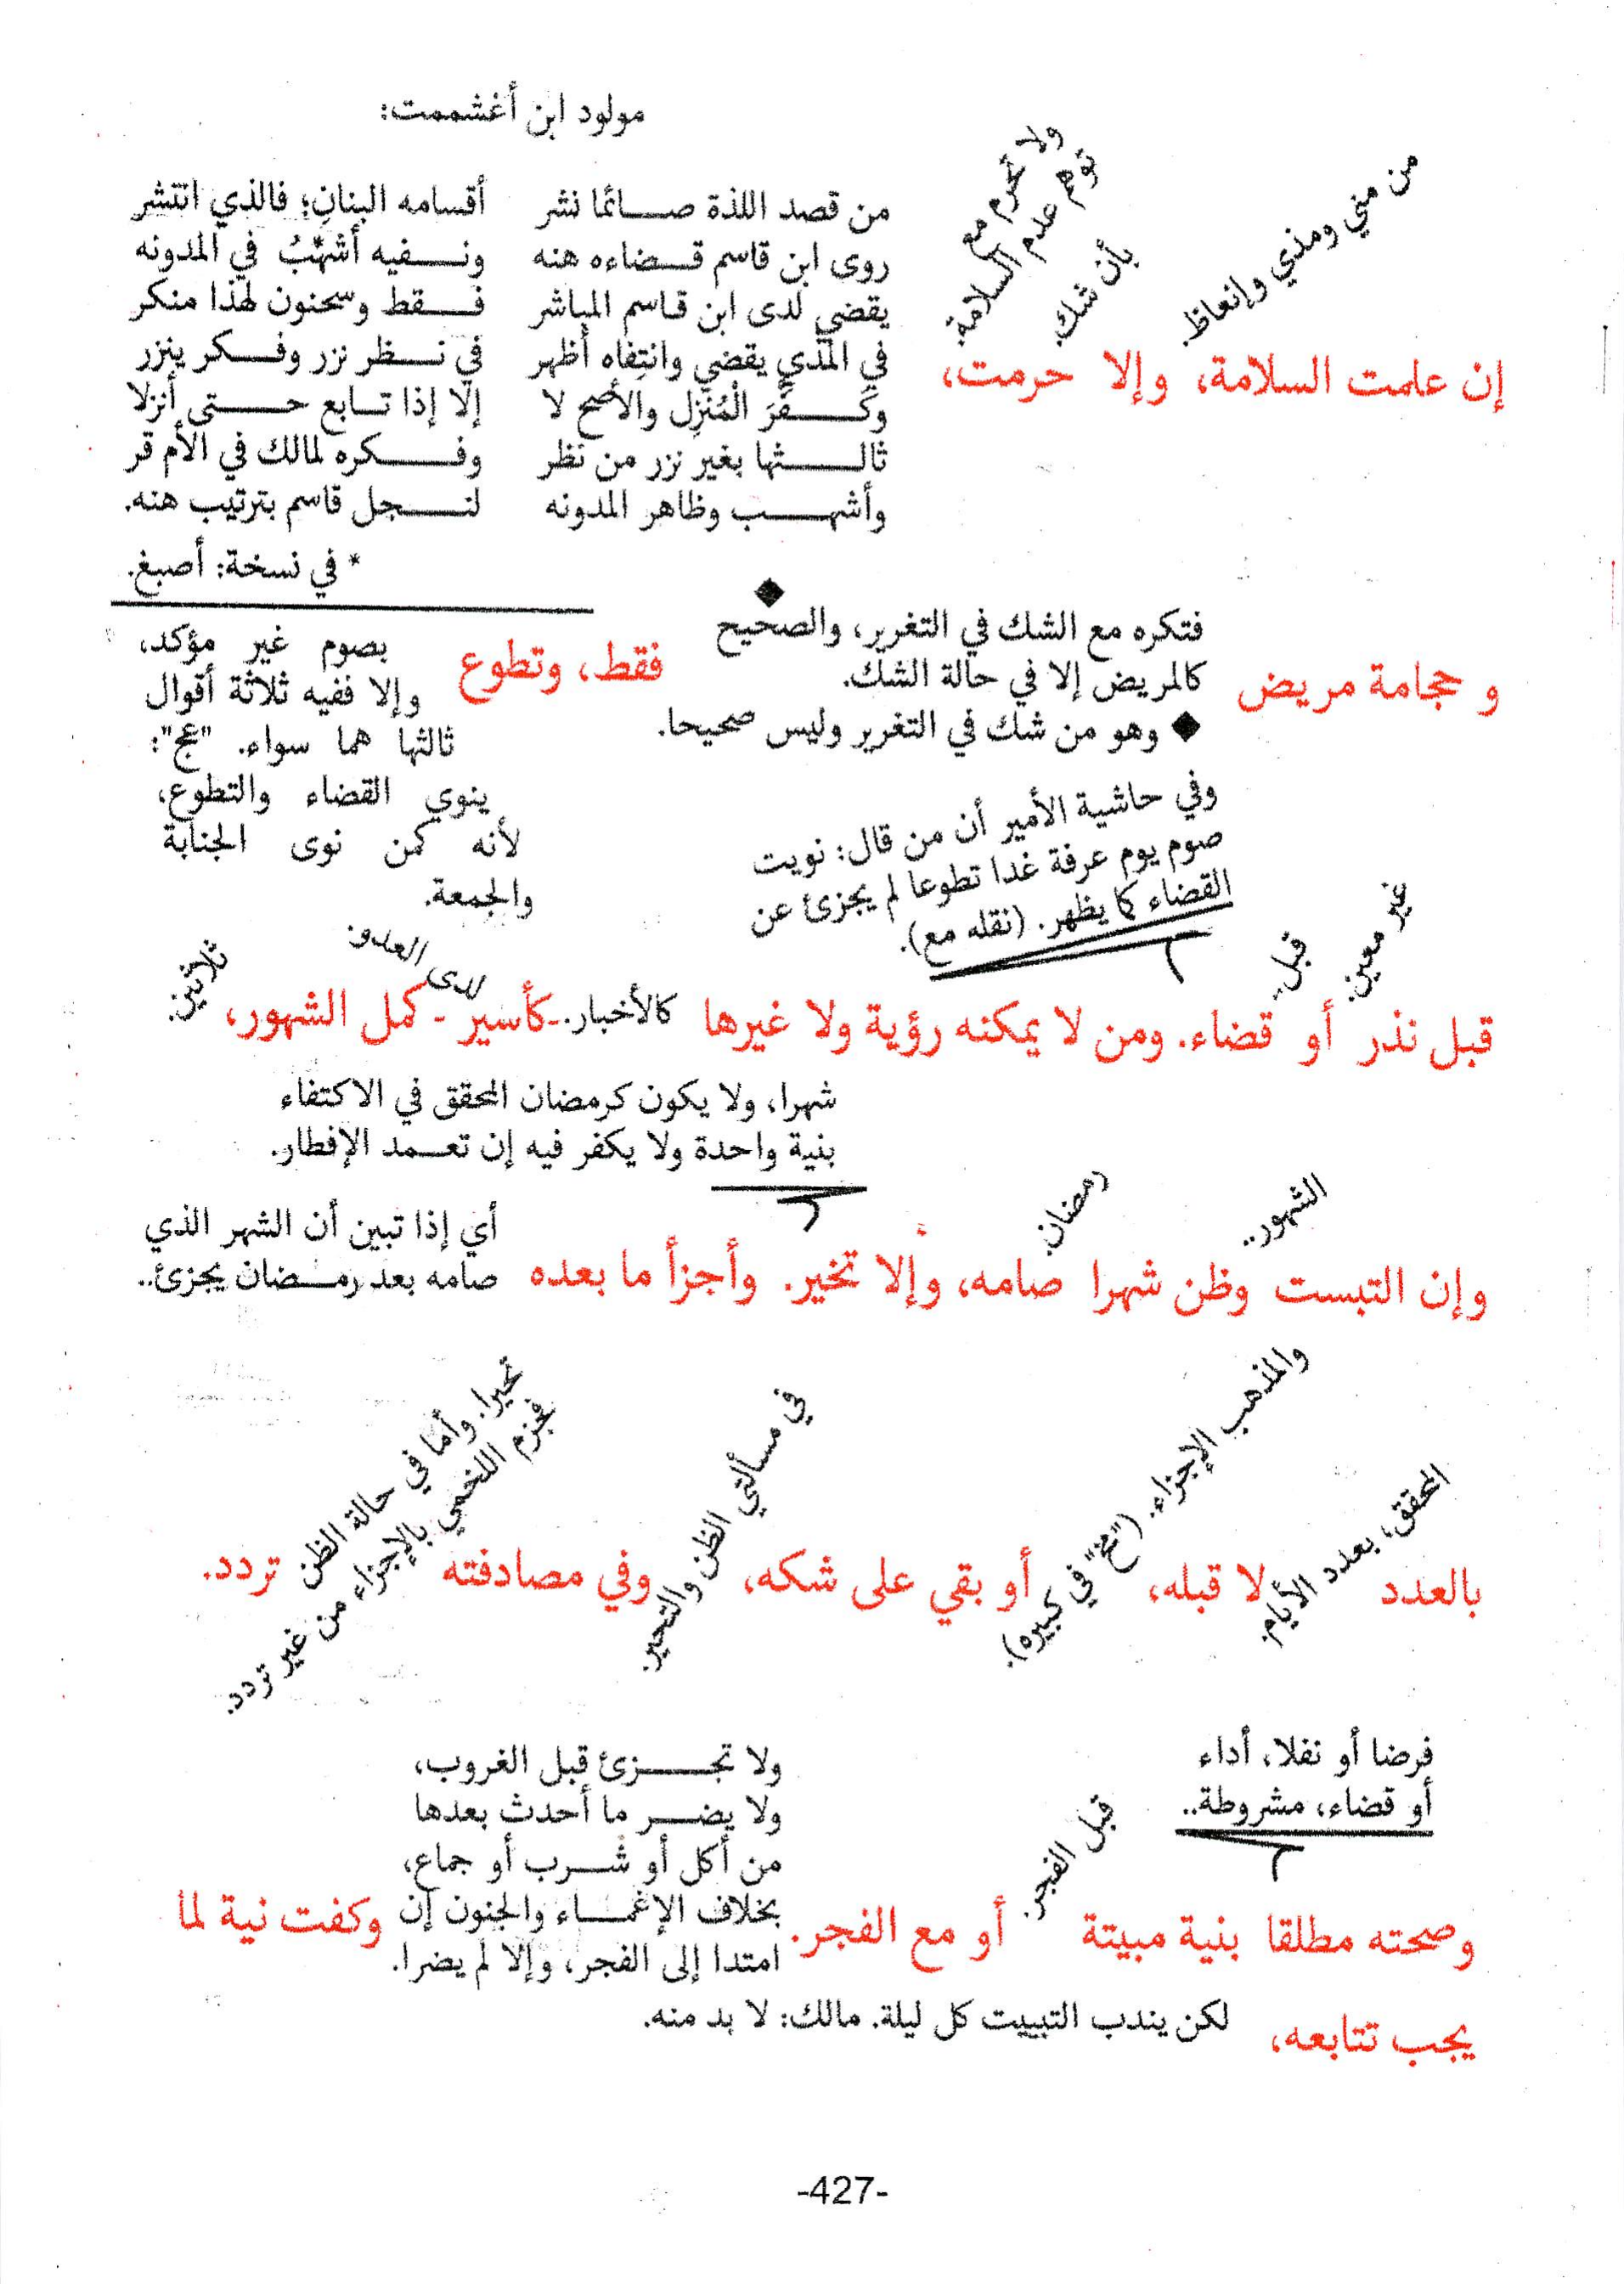 مولود ابن أغشممت:
من قصد اللذة صائما نشر أقسامه البنانِ؛ فالذي انتشر
روى ابن قاسم قضاءه هنه ونفيه أشهبُ* في المدونه
يقضي لدى ابن قاسم المباشر فقط وسحنون لهذا منكر
في المذي يقضي وانتِفاه أظهر في نظر نزر وفكر ينزر
وكَفَّرَ الْمُنْزِل والأصح لا إلا إذا تابع حتى أنزلا
ثالثها بغير نزر من نظر وفكره لمالك في الأم قر
وأشهب وظاهر المدونه لنجل قاسم بترتيب هنه.
* في نسخة: أصبغ.
من مني ومذي وإنعاظ.
إن علمت السلامة، وإلا حرمت،
بأن شك.
ولا تحرم مع
توهم عدم السلامة.
و حجامة مريض
فتكره مع الشك في التغرير، والصحيح
كالمريض إلا في حالة الشك.
◆ وهو من شك في التغرير وليس صحيحا.
فقط، وتطوع
بصوم غير مؤكد،
وإلا ففيه ثلاثة أقوال
ثالثها هما سواء. "عج":
ينوي القضاء والتطوع،
لأنه كمن نوى الجنابة
والجمعة.
وفي حاشية الأمير أن من قال: نويت
صوم يوم عرفة غدا تطوعا لم يجزئ عن
القضاء كما يظهر. (نقله مع).
قبل نذر
غير معين.
أو
قبل..
قضاء. ومن لا يمكنه رؤية ولا غيرها
كالأخبار..
-كأسير-
لدى العدو.
كمل الشهور،
ثلاثين.
شهرا، ولا يكون كرمضان المحقق في الاكتفاء
بنية واحدة ولا يكفر فيه إن تعمد الإفطار.
وإن التبست
الشهور..
وظن شهرا
رمضان.
صامه، وإلا تخير. وأجزأ ما بعده
أي إذا تبين أن الشهر الذي
صامه بعد رمضان يجزئ..
بالعدد
المحقق، بعدد الأيام.
لا قبله،
والمذهب الإجزاء. ("مخ" في كبيره).
أو بقي على شكه،
في مسألتي الظن والتحير.
وفي مصادفته
تحيرا. وأما في حالة الظن
فجزم اللخمي بالإجزاء من غير تردد.
تردد.
فرضا أو نفلا، أداء
أو قضاء، مشروطة..
وصحته مطلقا بنية مبيتة
قبل الفجر.
أو مع الفجر.
ولا تجزئ قبل الغروب،
ولا يضر ما أحدث بعدها
من أكل أو شرب أو جماع،
بخلاف الإغماء والجنون إن
امتدا إلى الفجر، وإلا لم يضرا.
وكفت نية لما
يجب تتابعه،
لكن يندب التبييت كل ليلة. مالك: لا بد منه.
-427-